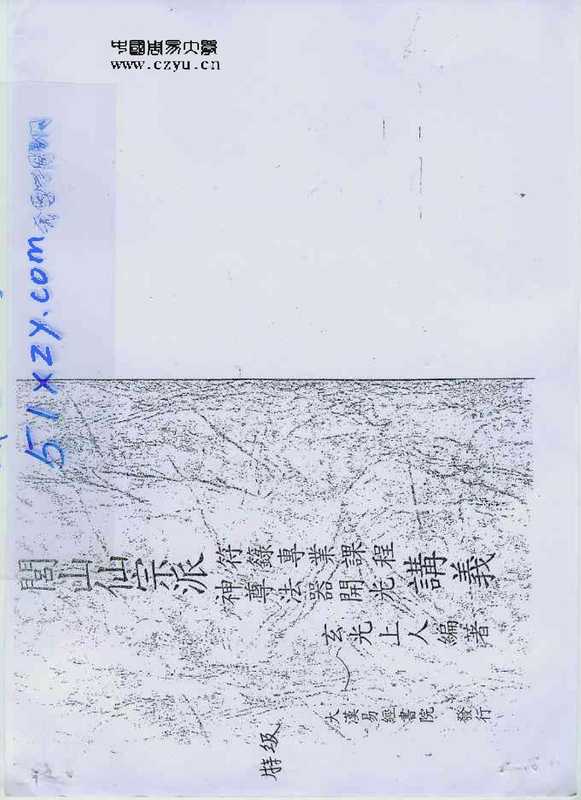 中國周易大學
www.czyu.cn
51xzy.com
閭山仙宗派
符籙專業課程
神尊法器開光
講義
玄光上人編著
大漢易經書院 發行
特级